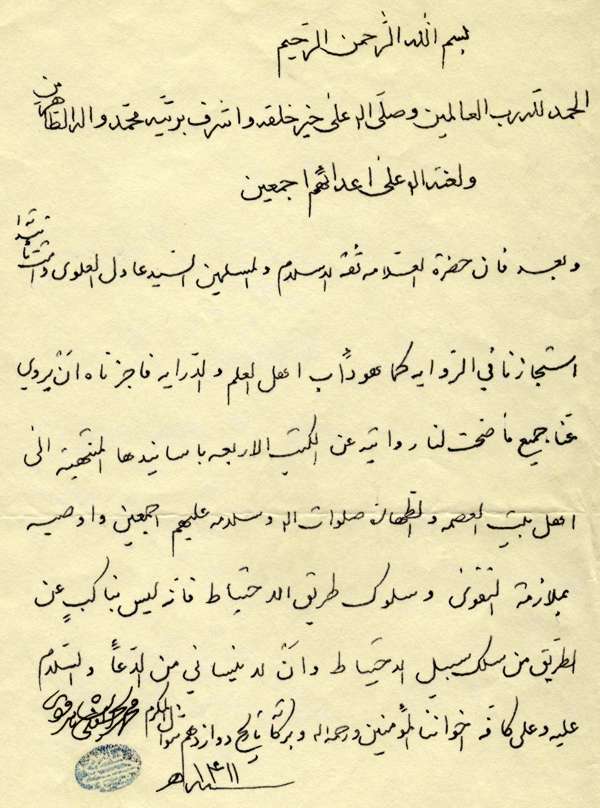 بسم الله الرحمن الرحيم
الحمد لله رب العالمين وصلى الله على خير خلقه واشرف بريته محمد واله الطاهرين
ولعنة الله على اعدائهم اجمعين
وبعد فان حضرة العلامه ثقة الاسلام والمسلمين السيد عادل العلوى دامت تأييداته
استجازنا في الروايه كما هو دأب اهل العلم والدرايه فاجزناه ان يروي
عنا جميع ما صحت لنا روايته عن الكتب الاربعه باسانيدها المنتهية الى
اهل بيت العصمه والطهاره صلوات الله وسلامه عليهم اجمعين واوصيه
بملازمة التقوى وسلوك طريق الاحتياط فانه ليس بناكبٍ عن
الطريق من سلك سبيل الاحتياط وان لا ينساني من الدعاء والسلام
عليه وعلى كافة اخواننا المؤمنين ورحمة الله وبركاته بتاريخ دوازدهم شوال المكرم
سنه ١٤١١هـ